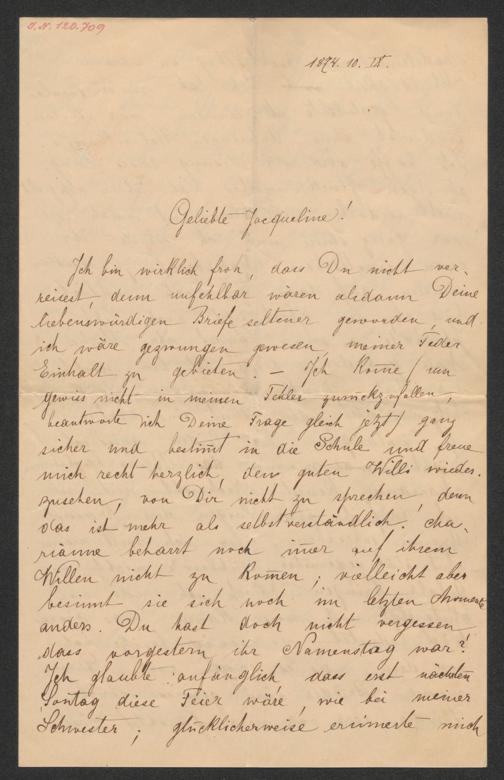 I.N. 120.709
1874. 10. IX.
Geliebte Jacqueline!
Ich bin wirklich froh, dass Du nicht ver-
reisest, denn unfehlbar wären alsdann Deine
liebenswürdigen Briefe seltener geworden, und
ich wäre gezwungen gewesen, meiner Feder
Einhalt zu gebieten. — Ich kom̄e (um
gewiss nicht in meinen Fehler zurückzufallen,
beantworte ich Deine Frage gleich jetzt) ganz
sicher und bestim̄t in die Schule und freue
mich recht herzlich, den guten Willi wieder-
zusehen, von Dir nicht zu sprechen, denn
das ist mehr als selbstverständlich. Ma-
rianne beharrt noch im̄er auf ihrem
Willen nicht zu kom̄en; vielleicht aber
besinnt sie sich noch im letzten Momente
anders. Du hast doch nicht vergessen
dass vorgestern ihr Namenstag war?
Ich glaubte anfänglich dass erst nächsten
Sontag diese Feier wäre, wie bei meiner
Schwester; glücklicherweise erinnerte mich